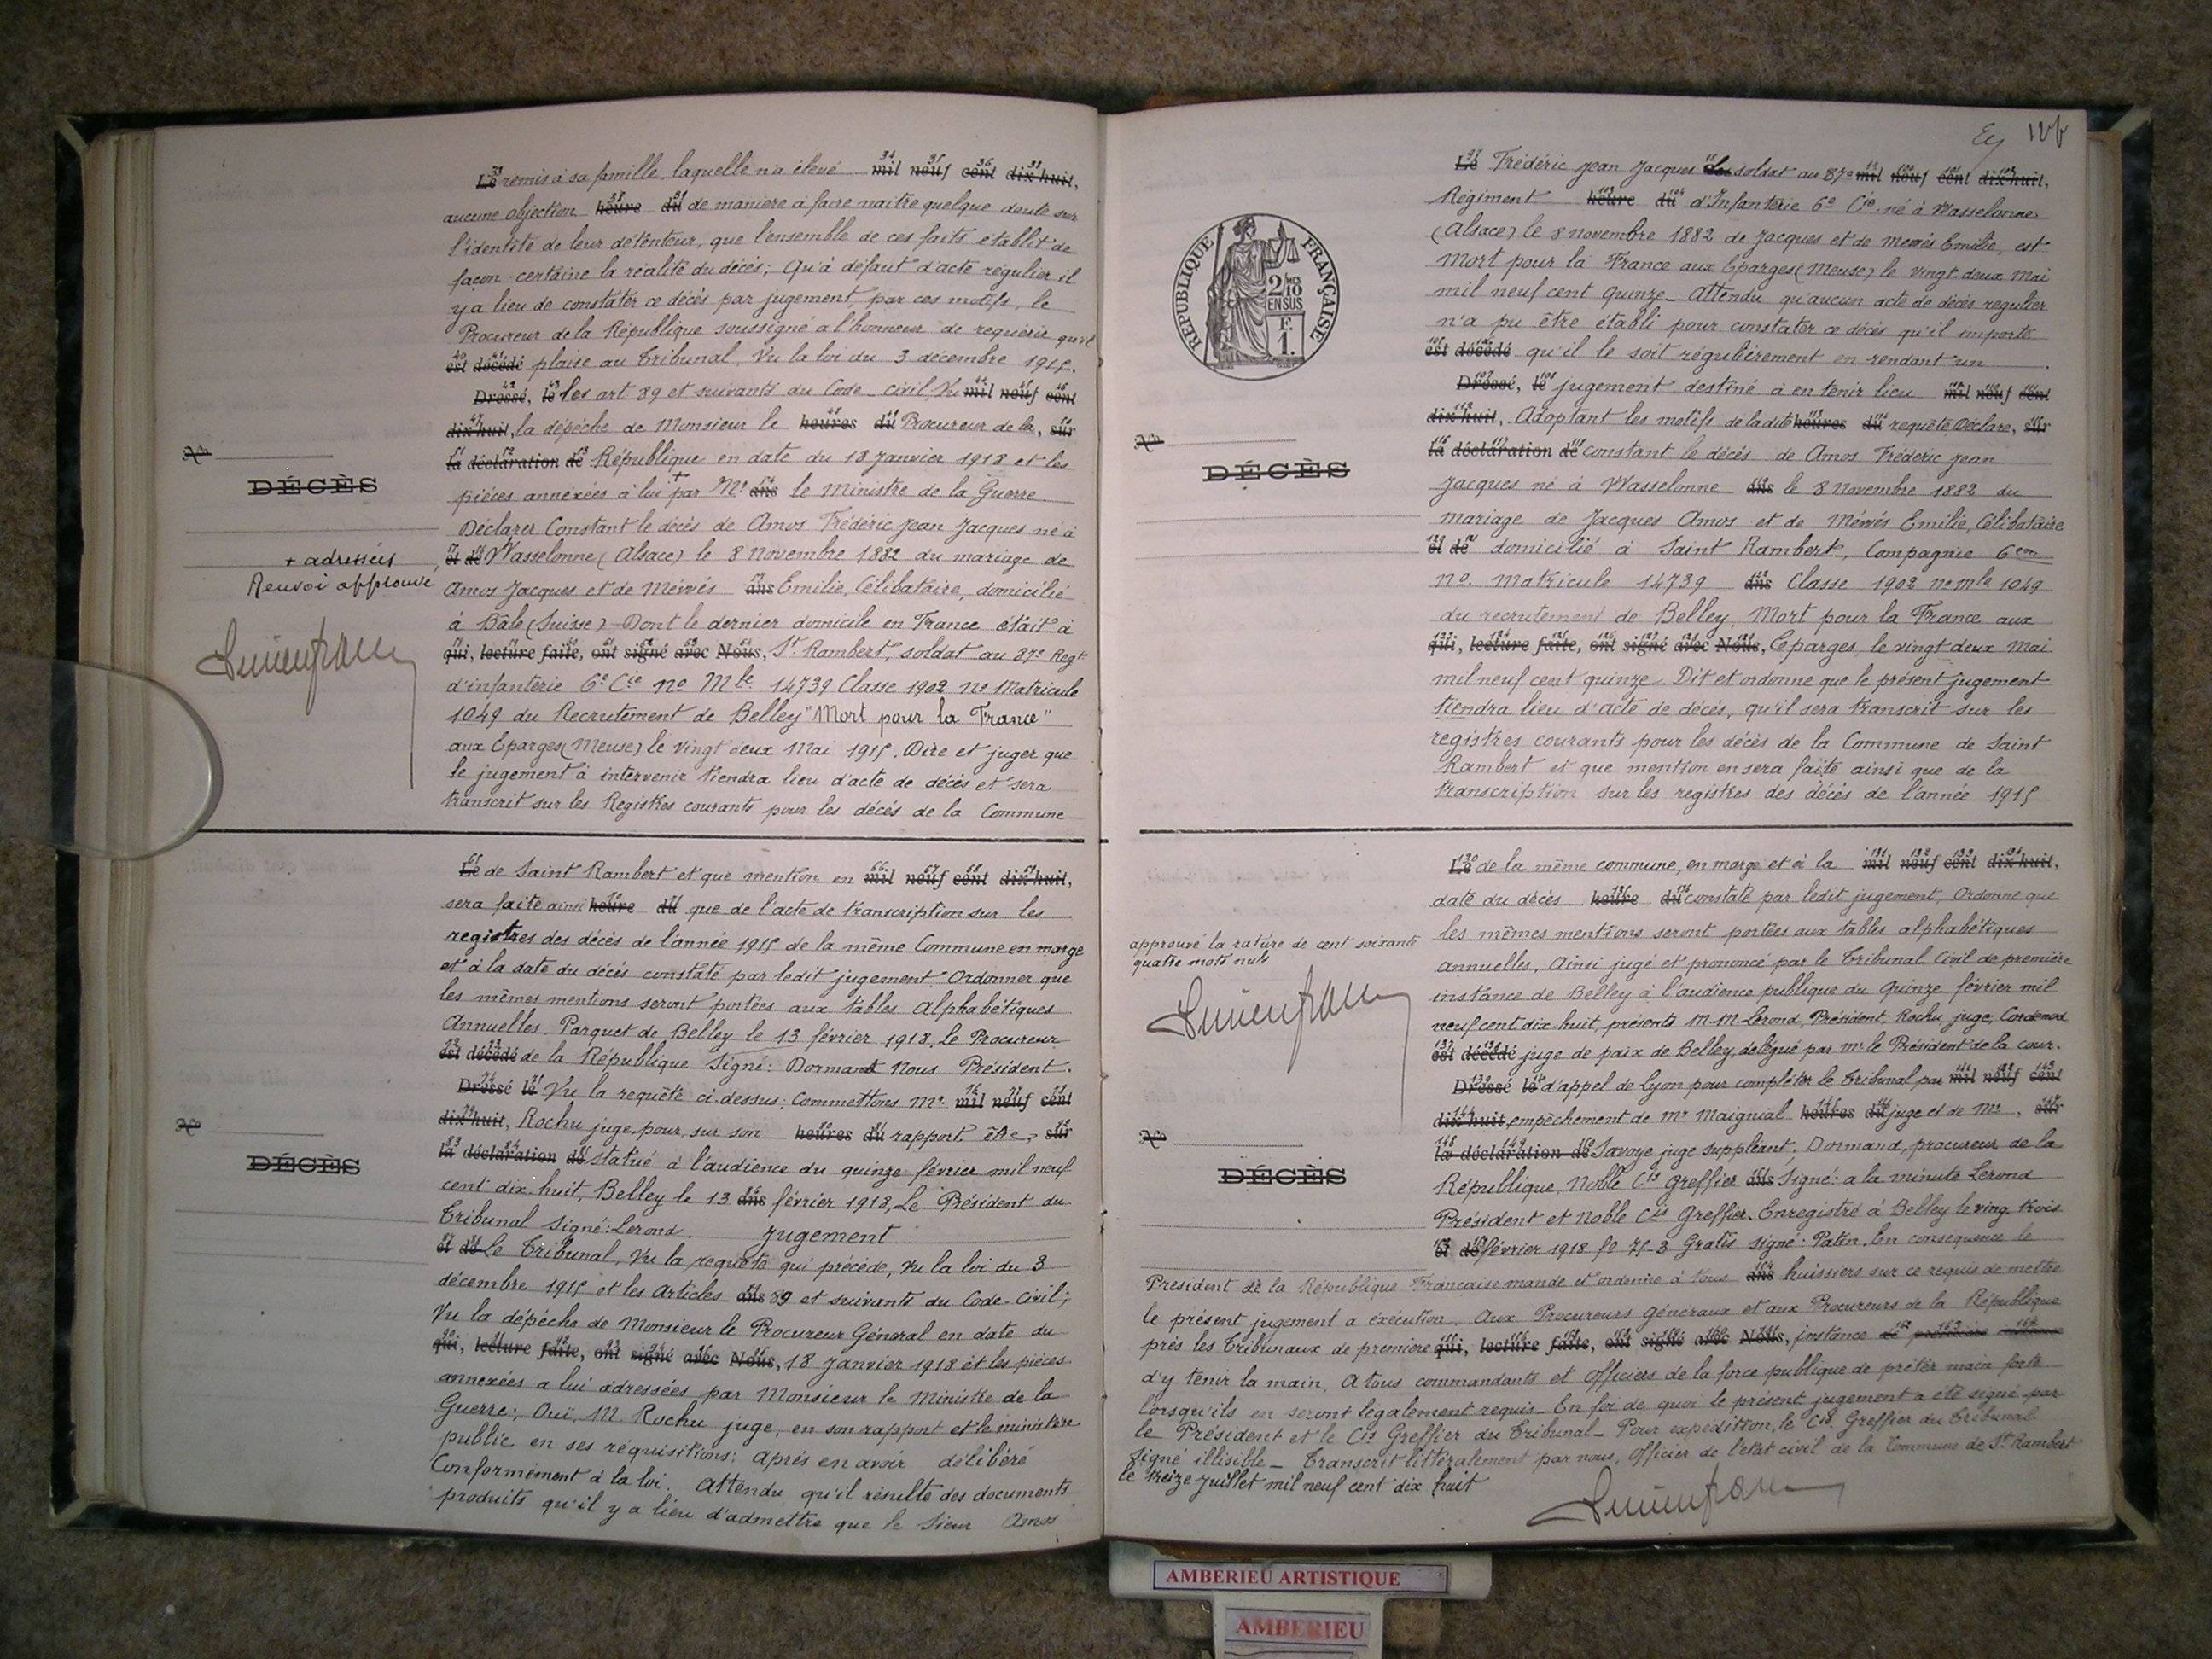 Le remis à sa famille, laquelle n'a élevé mil neuf cent dix huit,
aucune objection heure du de manière à faire naitre quelque doute sur
l'identité de leur détenteur, que l'ensemble de ces faits établit de
façon certaine la réalité du décès; Qu'à défaut d'acte régulier il
y a lieu de constater ce décès par jugement, par ces motifs, le
Procureur de la République soussigné a l'honneur de requérir qu'il
est décédé plaise au Tribunal, Vu la loi du 3 décembre 1915.
Dressé, le les art 89 et suivants du Code civil, Vu mil neuf cent
dix huit, la dépêche de Monsieur le heures du Procureur de la, sur
la déclaration de République en date du 18 Janvier 1918 et les
N°
DÉCÈS
pièces annexées à lui + par Mr ans le Ministre de la Guerre
Déclarer Constant le décès de Amos Frédéric Jean Jacques né à
+ adressées
Renvoi approuvé
et de Wasselonne (Alsace) le 8 Novembre 1882 du mariage de
Amos Jacques et de Mervés ans Emilie, Célibataire, domicilié
à Bâle (Suisse) Dont le dernier domicile en France était à
qui, lecture faite, ont signé avec Nous, St Rambert, soldat au 87e Regt
d'infanterie 6e Cie no Mle 14739 Classe 1902 no Matricule
1049 du Recrutement de Belley "Mort pour la France"
aux Eparges (Meuse) le vingt deux Mai 1915. Dire et juger que
le jugement à intervenir tiendra lieu d'acte de décès et sera
transcrit sur les Registres courants pour les décès de la Commune
Le de Saint Rambert et que mention en mil neuf cent dix huit,
sera faite ainsi heure du que de l'acte de transcription sur les
registres des décès de l'année 1915 de la même Commune en marge
et à la date du décès constaté par ledit jugement. Ordonner que
les mêmes mentions seront portées aux tables alphabétiques
Annuelles. Parquet de Belley le 13 février 1918. Le Procureur
est décédé de la République Signé: Dormand Nous Président.
Dressé le Vu la requête ci-dessus; Commettons Mr. mil neuf cent
dix huit, Rochu juge, pour, sur son heures du rapport être, sur
la déclaration de statué à l'audience du quinze février mil neuf
N°
DÉCÈS
cent dix-huit, Belley le 13 ans février 1918, Le Président du
Tribunal Signé: Lerond. Jugement
et de Le Tribunal, Vu la requête qui précède, Vu la loi du 3
décembre 1915 et les Articles ans 89 et suivants du Code-Civil;
Vu la dépêche de Monsieur le Procureur Géneral en date du
qui, lecture faite, ont signé avec Nous, 18 Janvier 1918 et les pièces
annexées a lui adressées par Monsieur le Ministre de la
Guerre; Ouï, M. Rochu juge, en son rapport et le ministère
public en ses réquisitions; Après en avoir délibéré
Conformément à la loi. Attendu qu'il résulte des documents
produits qu'il y a lieu d'admettre que le Sieur Amos
126
Le Frédéric Jean Jacques soldat au 87e mil neuf cent dix huit,
Régiment heure du d'Infanterie 6e Cie né à Wasselonne
(Alsace) le 8 novembre 1882 de Jacques et de Mervés Emilie, est
Mort pour la France aux Eparges (Meuse) le vingt-deux Mai
mil neuf cent quinze_ Attendu qu'aucun acte de décès regulier
n'a pu être établi pour constater ce décès qu'il importe
REPUBLIQUE FRANÇAISE
2/10
EN SUS
F.
1.
est décédé qu'il le soit régulièrement en rendant un
Dressé, le jugement destiné à en tenir lieu mil neuf cent
dix huit, Adoptant les motifs de la dite heures du requête, Déclare, sur
la déclaration de constant le décès de Amos Frédéric Jean
N°
DÉCÈS
Jacques né à Wasselonne ans le 8 Novembre 1882 du
mariage de Jacques Amos et de Mervés Emilie, Célibataire
et de domicilié à Saint Rambert, Compagnie 6em
no. Matricule 14739 ans Classe 1902 no mle 1049
du recrutement de Belley, Mort pour la France aux
qui, lecture faite, ont signé avec Nous, Eparges, le vingt deux Mai
mil neuf cent quinze. Dit et ordonne que le présent jugement
tiendra lieu d'acte de décès, qu'il sera transcrit sur les
registres courants pour les décès de la Commune de Saint
Rambert et que mention en sera faite ainsi que de la
transcription sur les registres des décès de l'année 1915
Le de la même commune, en marge et à la mil neuf cent dix huit,
date du décès heure du constaté par ledit jugement, Ordonne que
les mêmes mentions seront portées aux tables alphabétiques
approuvé la rature de cent soixante
quatre mots nuls
annuelles, Ainsi jugé et prononcé par le Tribunal Civil de première
instance de Belley à l'audience publique du Quinze février mil
neuf cent dix huit, présents M.M. Lerond, Président, Rochu juge,
est décédé juge de paix de Belley, délégué par mr le Président de la cour.
Dressé le d'appel de Lyon pour compléter le Tribunal par mil neuf cent
dix huit empêchement de Mr Maignial heures du juge et de Mr, sur
la déclaration de Savoye juge suppléant, Dormand, procureur de la
N°
DÉCÈS
République, Noble Cis Greffier ans Signé: a la minute Lerond
Président et Noble Cis Greffier. Enregistré à Belley le ving. trois
et de février 1918 fo 75-3 Gratis signé: Patin. En consequence le
President de la République Francaise mande et ordonne à tous ans huissiers sur ce requis de mettre
le présent jugement a éxécution. Aux Procureurs Généraux et aux Procureurs de la République
près les Tribunaux de première qui, lecture faite, ont signé avec Nous, instance de première instance
d'y tenir la main, A tous commandants et Officiers de la force publique de prêter main forte
lorsqu'ils en seront légalement requis_ En foi de quoi le présent jugement a été signé par
le Président et le Cis Greffier du Tribunal_ Pour expédition, le Cis Greffier du Tribunal
Signé illisible_ Transcrit littéralement par nous, Officier de l'état civil de la Commune de St Rambert
le treize Juillet mil neuf cent dix huit
AMBERIEU ARTISTIQUE
AMBERIEU